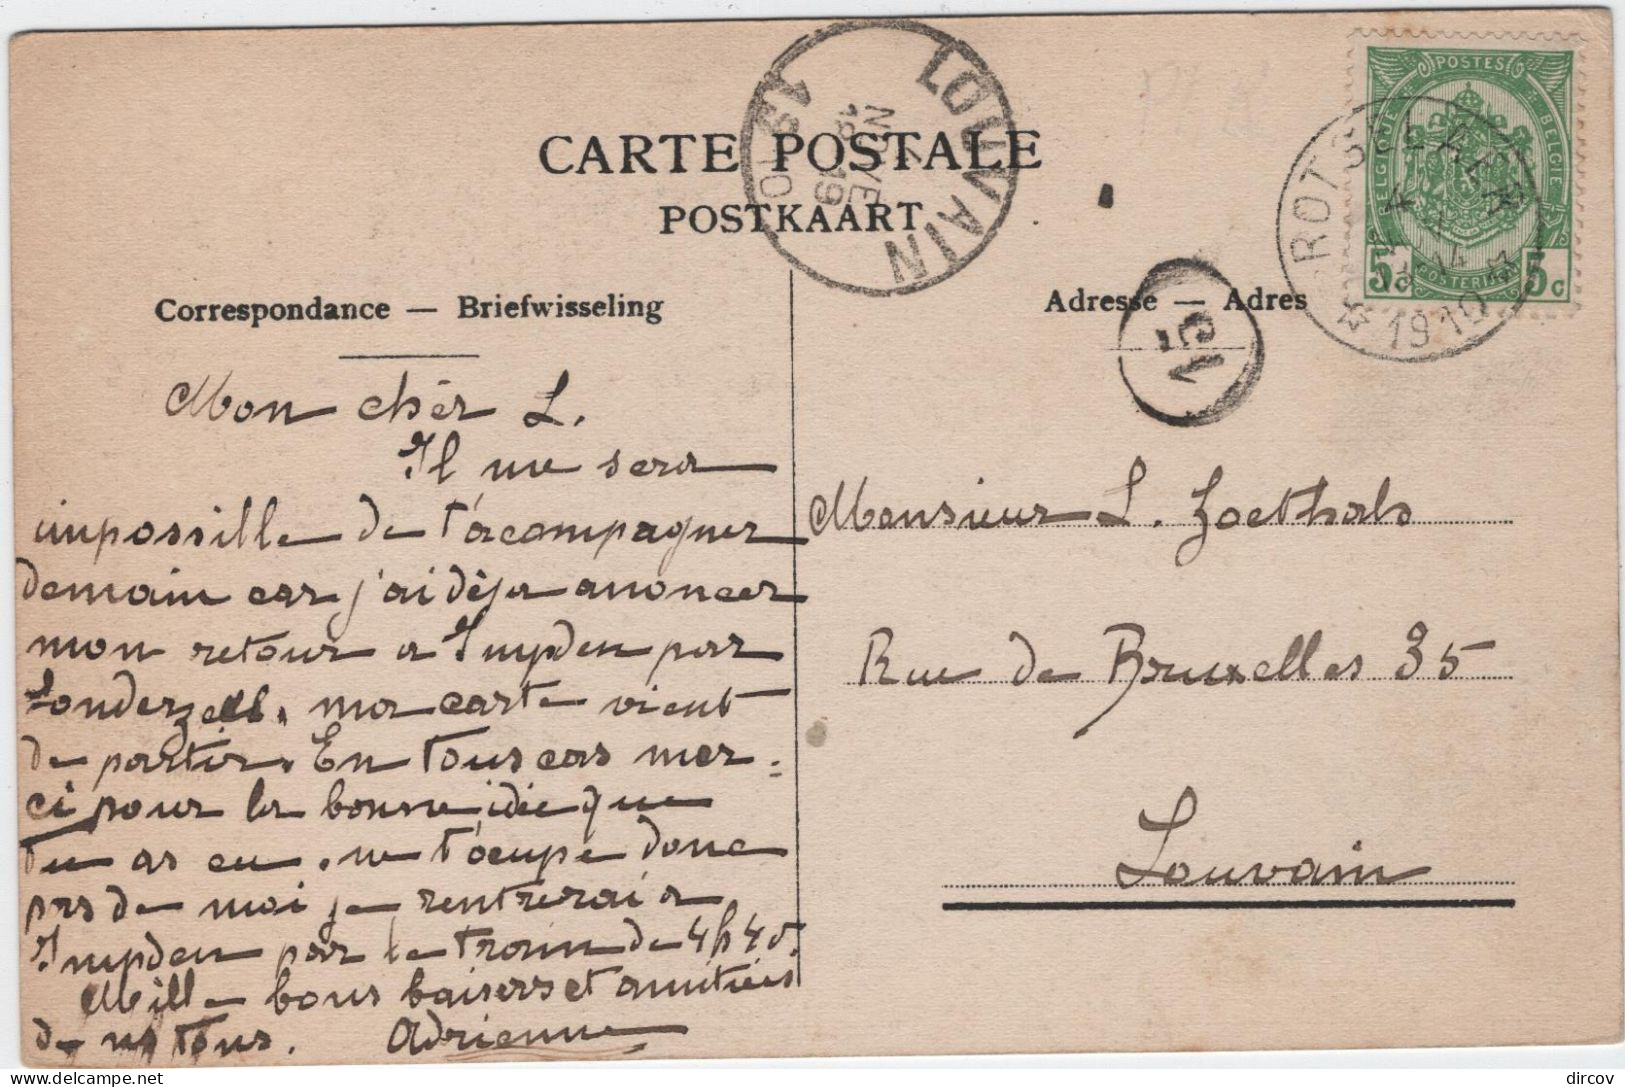 CARTE POSTALE
POSTKAART
LOUVAIN
Correspondance — Briefwisseling
Adresse — Adres
POSTES
BELGIQUE BELGIE
5c 5c
POSTERIJEN
ROTSELAER
1910
Mon chèr L.
Il me sera
impossille de t'acompagner
demain car j'ai dèja anoncer
mon retour a Impden par
Londerzell. ma carte vient
de partir. En tous cas mer=
ci pour la bonne idée que
tu as eu. ne t'ocupe donc
pas de moi je rentrerai a
Impden par le train de 4h45.
Mille bons baisers et amitiés
de tous. Adrienne
Monsieur L. Goethals
Rue de Bruxelles 35
Louvain
delcampe.net
dircov